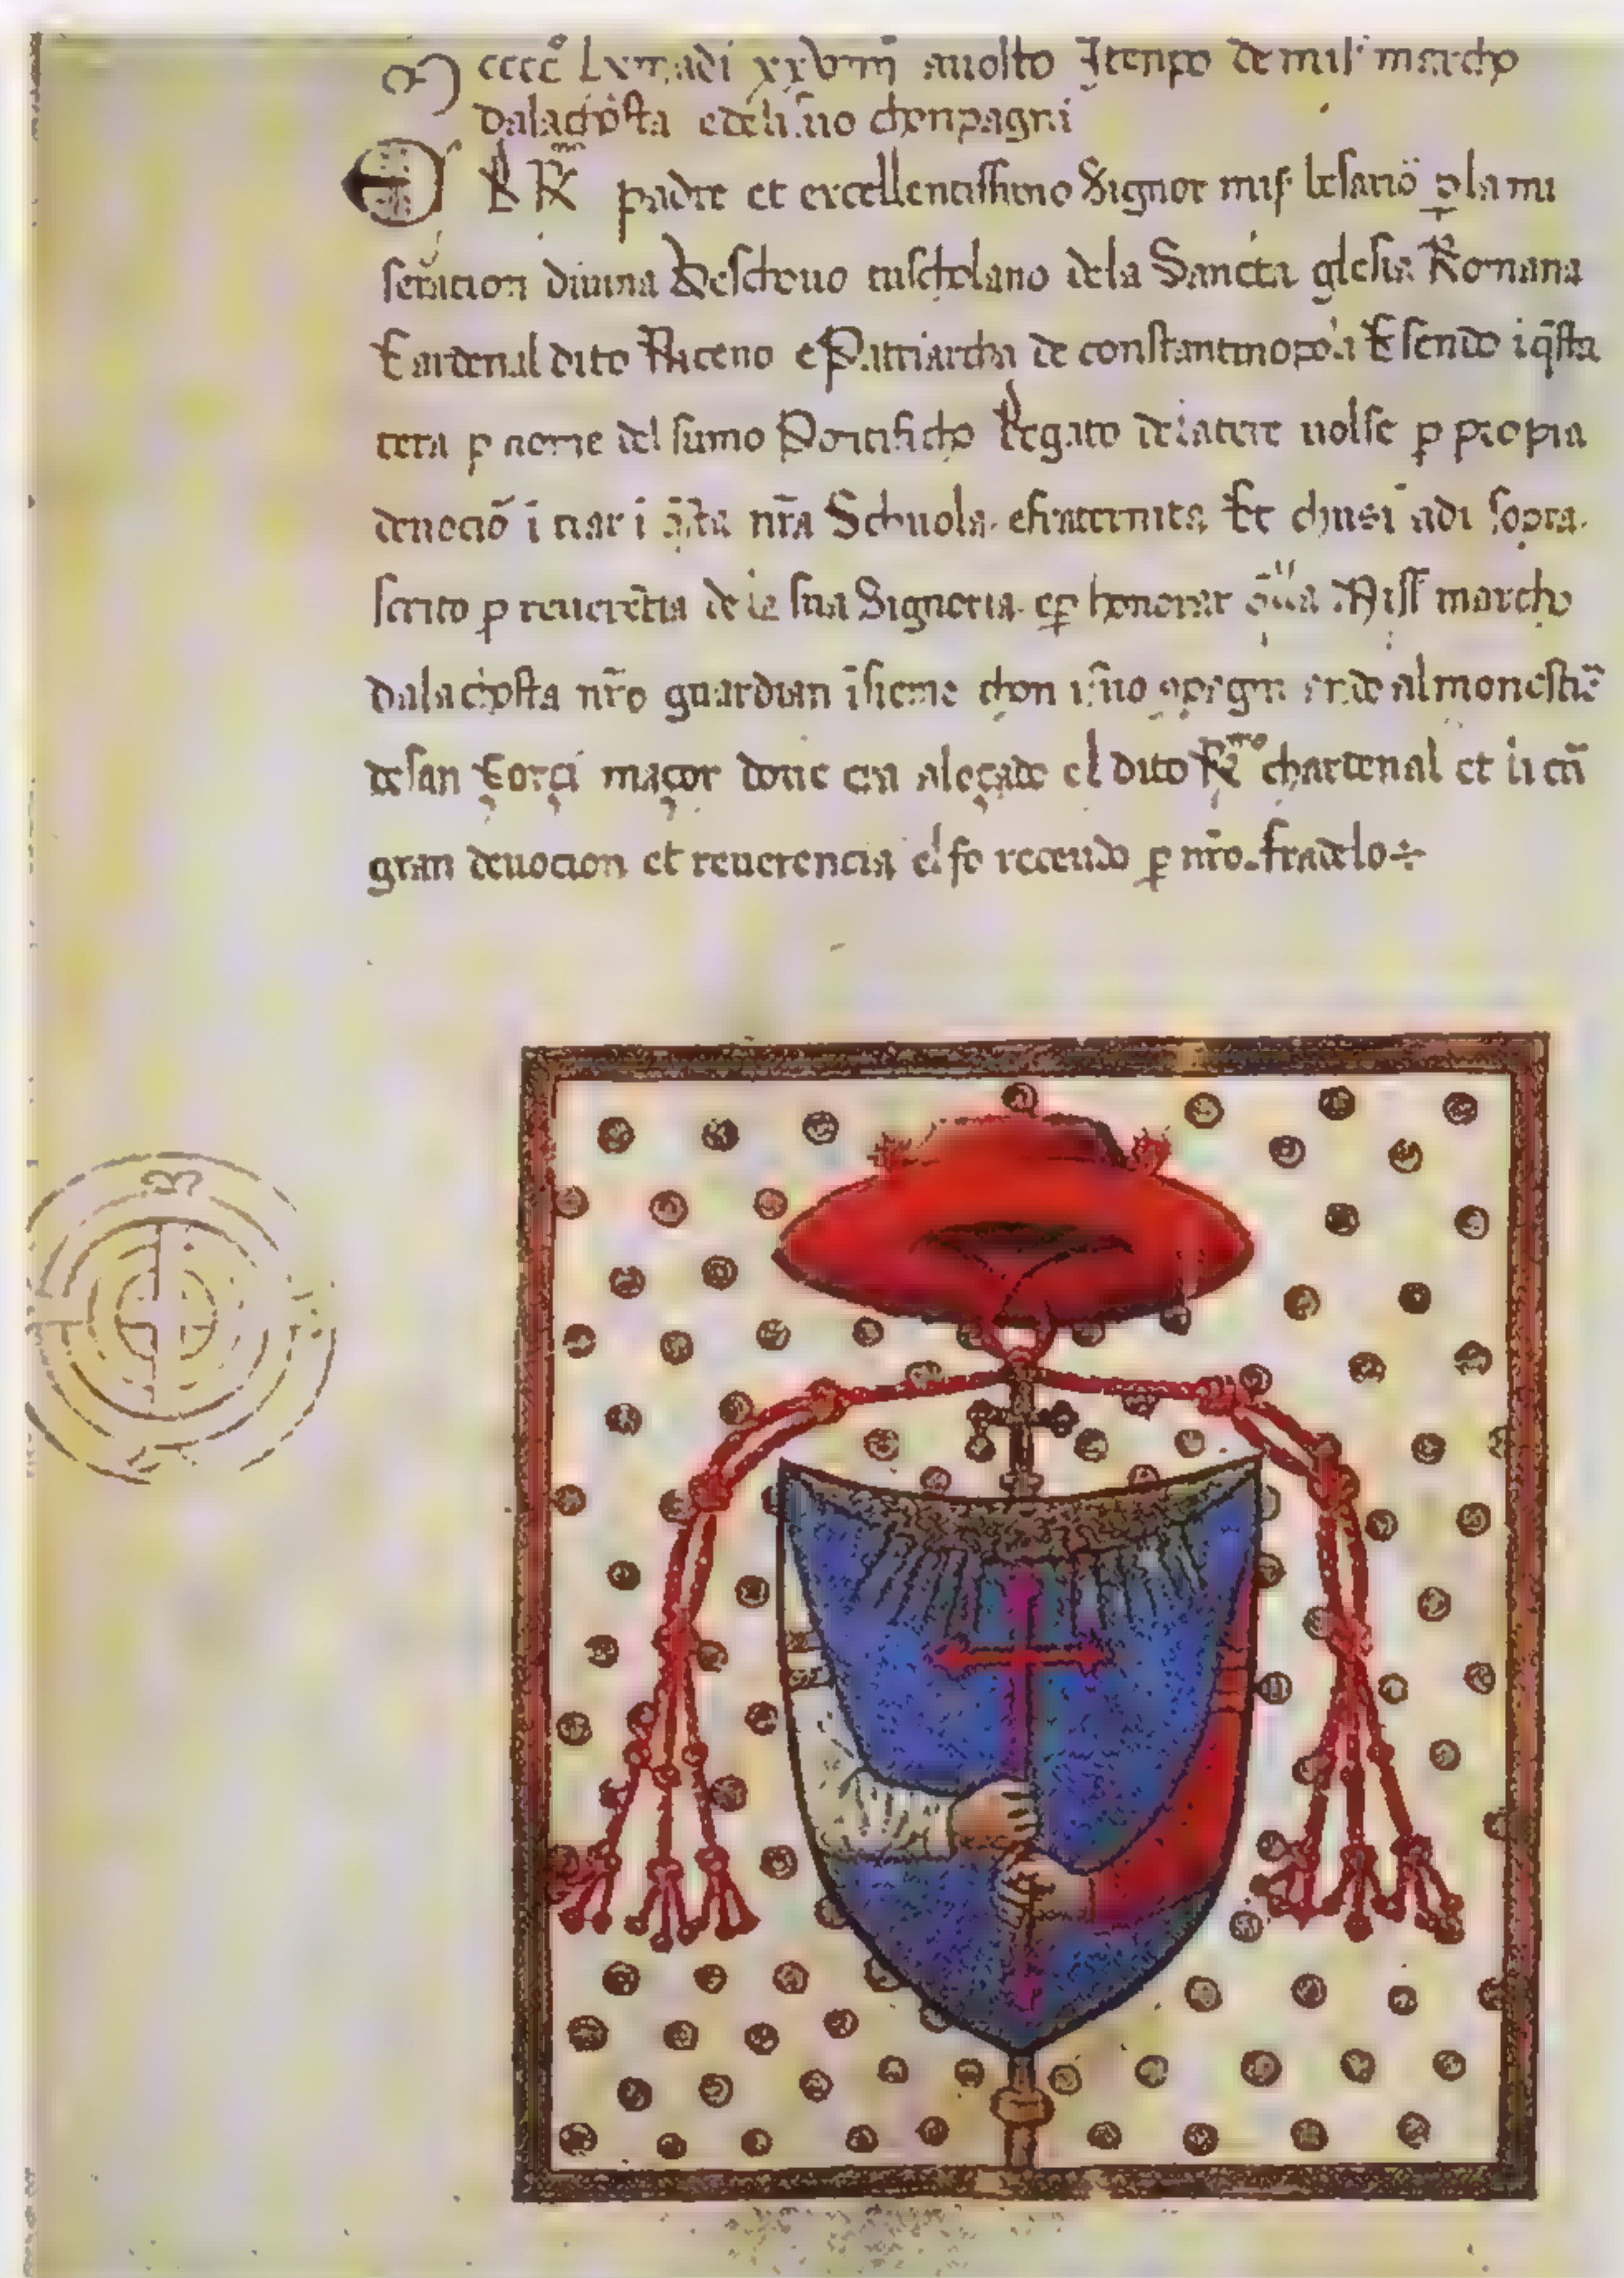 M cccc° Lxiii adi xxviiii avosto I tenpo de mis' marcho
dalachosta e deli suo chonpagni
El R.mo padre et excellentissimo Signor mis' besariō p la mi
seracion diuina Veschouo tuscholano dela Sancta glesia Romana
Cardenal dito Niceno e Patriarcha de constantinopola Esendo i q̄sta
tera p nome del sumo Pontificho Legato de latere uolse p propia
deuociō ītrar i q̄sta nr̄a Schuola e fraternita Et chusi adi sopra
scrito p reuerētia de la sua Signoria e p honorar Miss' marcho
dalachosta nr̄o guardian īsieme chon i suo ando al monestie
de san Çorçi maçor doue era aleçado el dito R.mo chardenal et li cū
gran deuocion et reuerencia el fo receudo p nr̄o fradelo÷